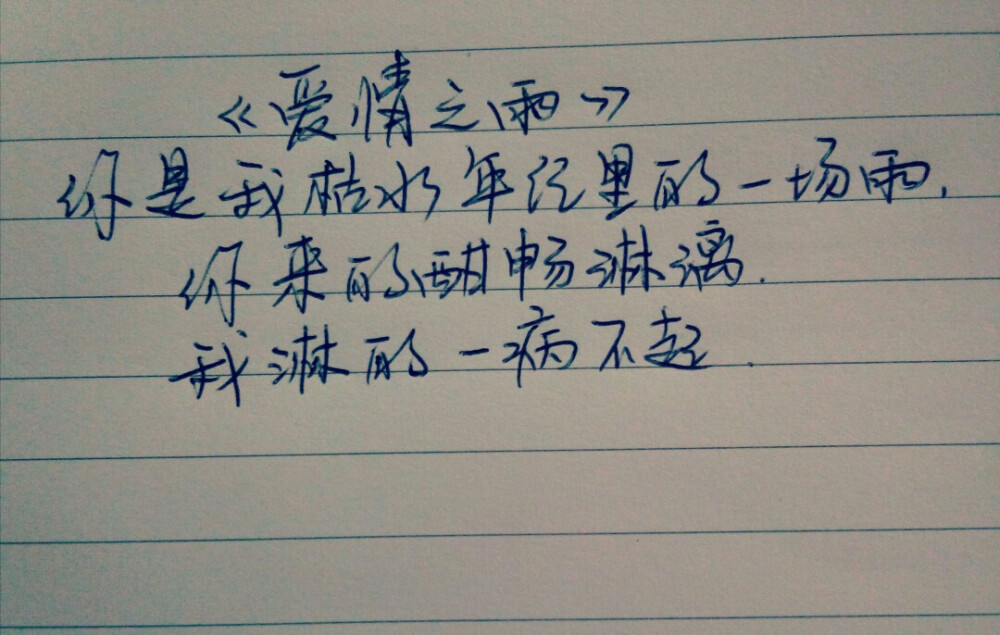 《爱情之雨》
你是我枯水年纪里的一场雨,
你来的酣畅淋漓.
我淋的一病不起.